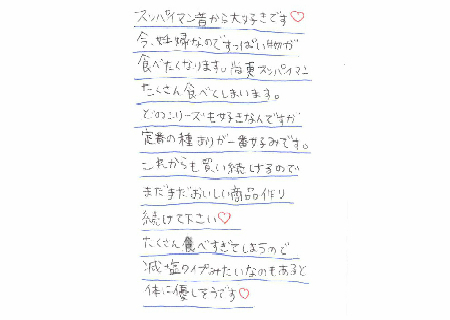 スッパイマン昔から大好きです♡
今、妊婦なのですっぱい物が
食べたくなります。尚更スッパイマン
たくさん食べてしまいます。
どのシリーズも好きなんですが
定番の種ありが一番好みです。
これからも買い続けるので
まだまだおいしい商品作り
続けて下さい♡
たくさん食べすぎてしまうので
減塩タイプみたいなのもあると
体に優しそうです♡